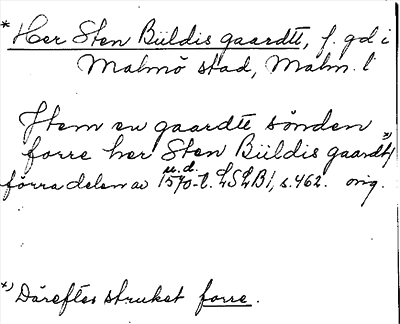 * Her Sten Büldis gaardtt, f. gd i
Malmö stad, Malm. l
Item en gaardtt sönden
forre her Sten Büldis gaardtt x)
förra delen av 1570-t. LSLB1, s. 462. orig.
m. d.
x) Därefter struket forre.